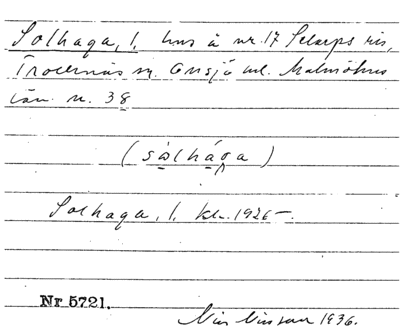 Solhaga, l. hus å nr. 17 Skarps
sn. Onsjö hd. Malmöhus
län. n. 38
(sòlhága)
Solhaga, l. kb. 1926–.
Nr 5721.
Nils Nilsson 1936.